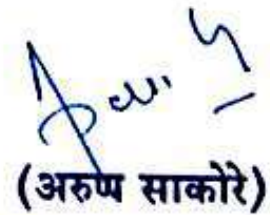 (अरुण साकोरे)